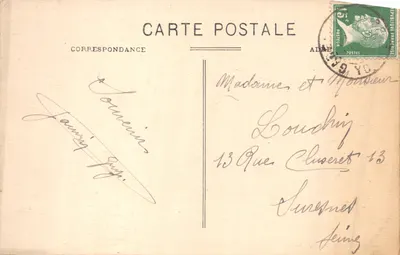 CARTE POSTALE
CORRESPONDANCE
Souvenir
Madame et Monsieur
13 Rue Cluseret 13
Suresnes
Seine